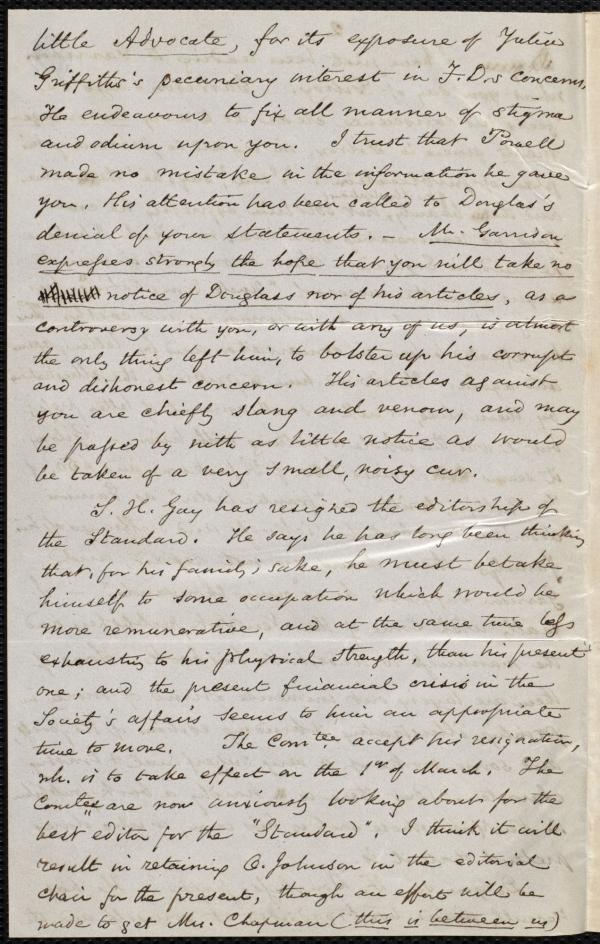 little Advocate, for its exposure of Julia
Griffiths's pecuniary interest in F.D.s concerns.
He endeavours to fix all manner of stigma
and odium upon you. I trust that Powell
made no mistake in the information he gave
you. His attention has been called to Douglas's
denial of your statements. - Mr. Garrison
expresses strongly the hope that you will take no
notice of Douglass nor of his articles, as a
controversy with you, or with any of us, is almost
the only thing left him, to bolster up his corrupt
and dishonest concern. His articles against
you are chiefly slang and venom, and may
be passed by with as little notice as would
be taken of a very small, noisy cur.
S. H. Gay has resigned the editorship of
the Standard. He says he has long been thinking
that, for his family's sake, he must betake
himself to some occupation which would be
more remunerative, and at the same time less
exhausting to his physical strength, than his present
one; and the present financial crisis in the
Society's affairs seems to him an appropriate
time to move. The Comtee accept his resignation,
wh. is to take effect on the 1st of March. The
Comtee are now anxiously looking about for the
best editor for the "Standard". I think it will
result in retaining O. Johnson in the editorial
chair for the present, though an effort will be
made to get Mrs. Chapman (this is between us)